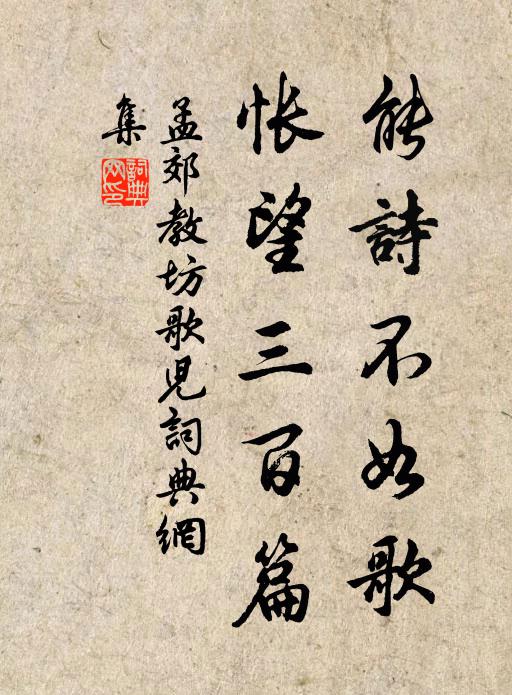 能詩不如歌
悵望三百篇
孟郊教坊歌兒詞典網
集
詞典
网印